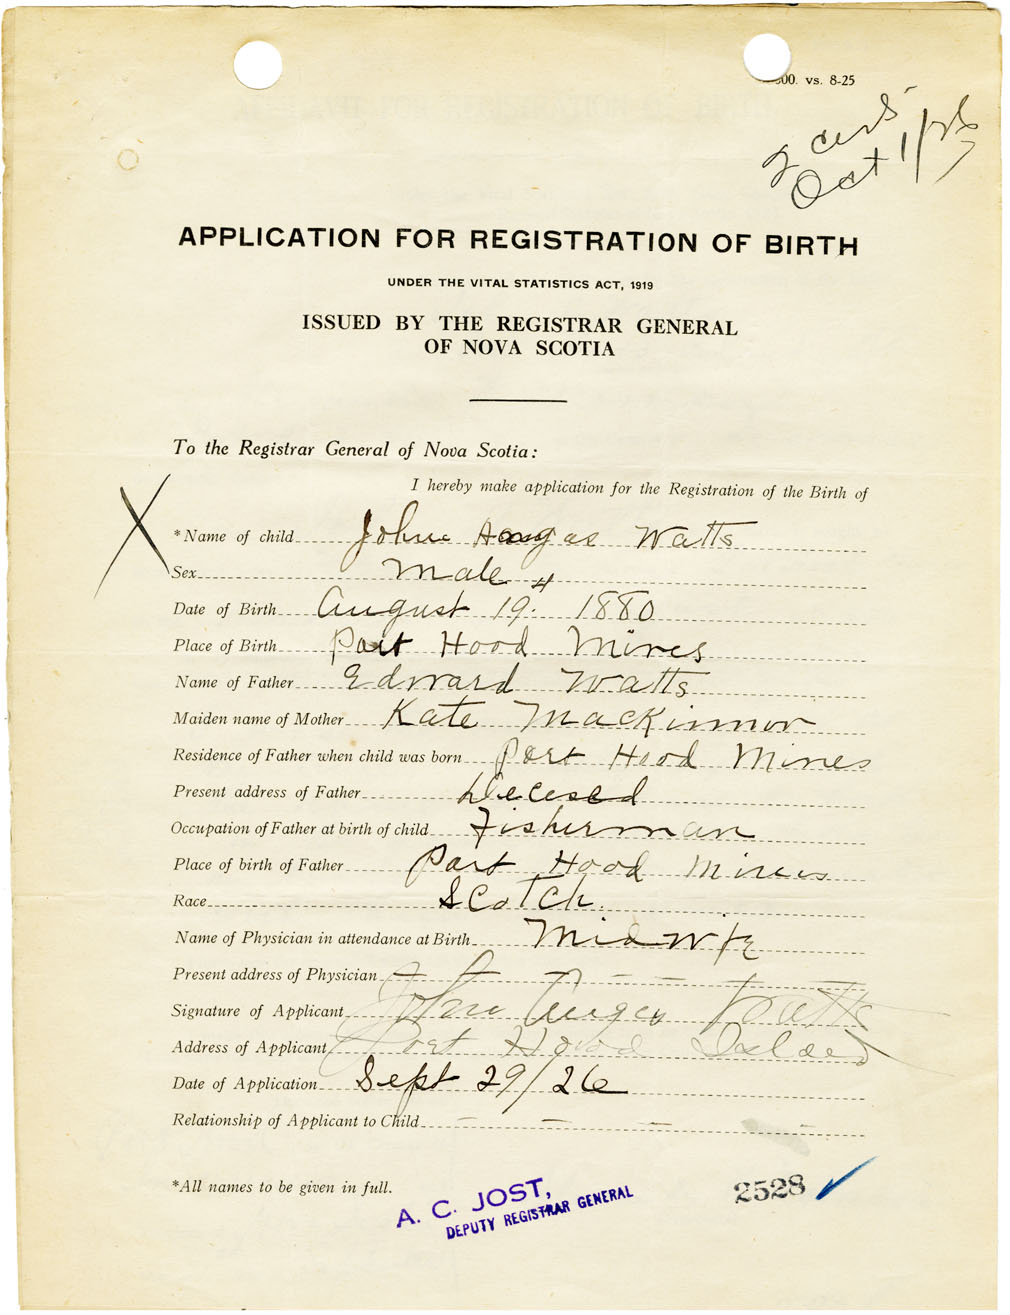 00. vs. 8-25
2 certs
Oct 1/26
APPLICATION FOR REGISTRATION OF BIRTH
UNDER THE VITAL STATISTICS ACT, 1919
ISSUED BY THE REGISTRAR GENERAL
OF NOVA SCOTIA
To the Registrar General of Nova Scotia:
I hereby make application for the Registration of the Birth of
*Name of child John Watts
Sex Male
Date of Birth August 19th 1880
Place of Birth Port Hood Mines
Name of Father Edward Watts
Maiden name of Mother Kate MacKinnon
Residence of Father when child was born Port Hood Mines
Present address of Father Decesed
Occupation of Father at birth of child Fisherman
Place of birth of Father Port Hood Mines
Race Scotch.
Name of Physician in attendance at Birth Midwife
Present address of Physician
Signature of Applicant John Watts
Address of Applicant Port Hood Island
Date of Application Sept 29/26
Relationship of Applicant to Child
*All names to be given in full.
A. C. JOST,
DEPUTY REGISTRAR GENERAL
2528